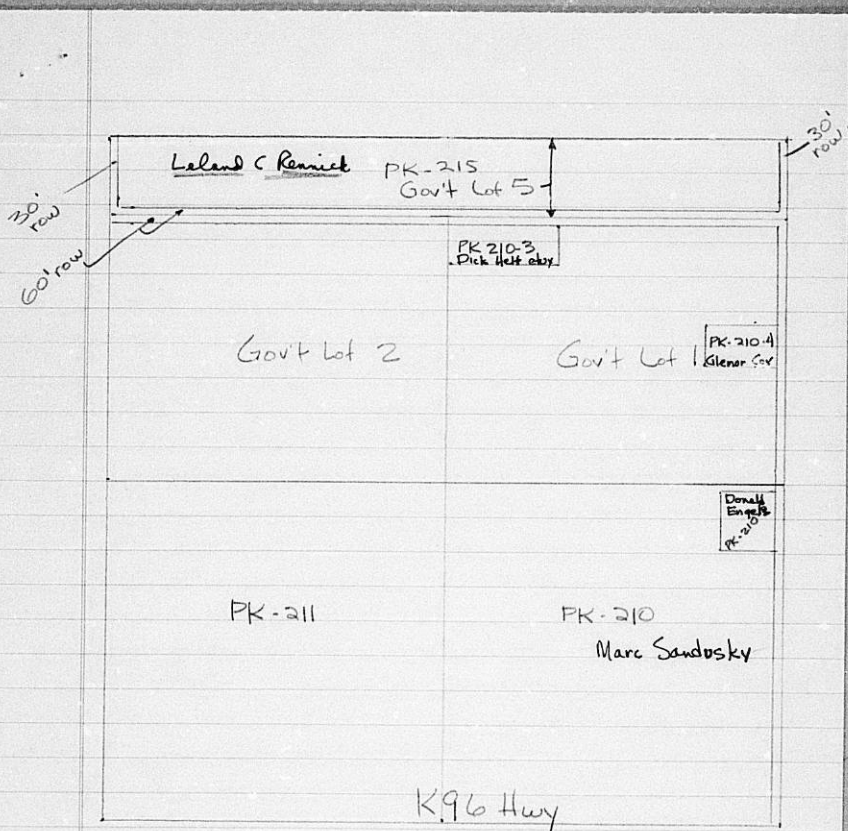 30'
row
Leland C Rennick
PK-215
Gov't Lot 5
30'
row
60' row
PK 210-3
Dick Hett
Gov't Lot 2
Gov't Lot 1
PK-210-4
Glenor
Donald
PK-210
PK-211
PK-210
Marc Sandosky
K96 Hwy